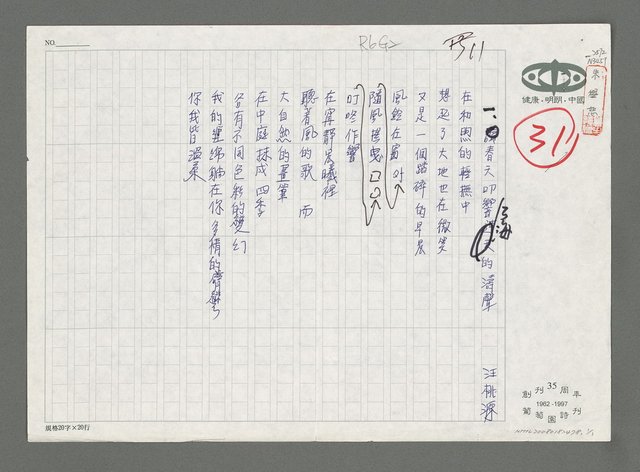 NO.
R6G2
健康·明朗·中國
311
春天叩響 的濤聲
汪桃源
在和煦的輕撫中
想起了大地也在微笑
又是一個踏碎的早晨
風鈴在窗
隨風搖曳
叮咚作響
在寧靜晨曦裡
聽著風的歌 而
大自然的畫筆
在中庭抹成四季
各有不同色彩的變幻
我的纏綿躺在你多情的臂彎
你我皆溫柔
創刊35周年
1962-1997
葡萄園詩刊
規格20字×20行